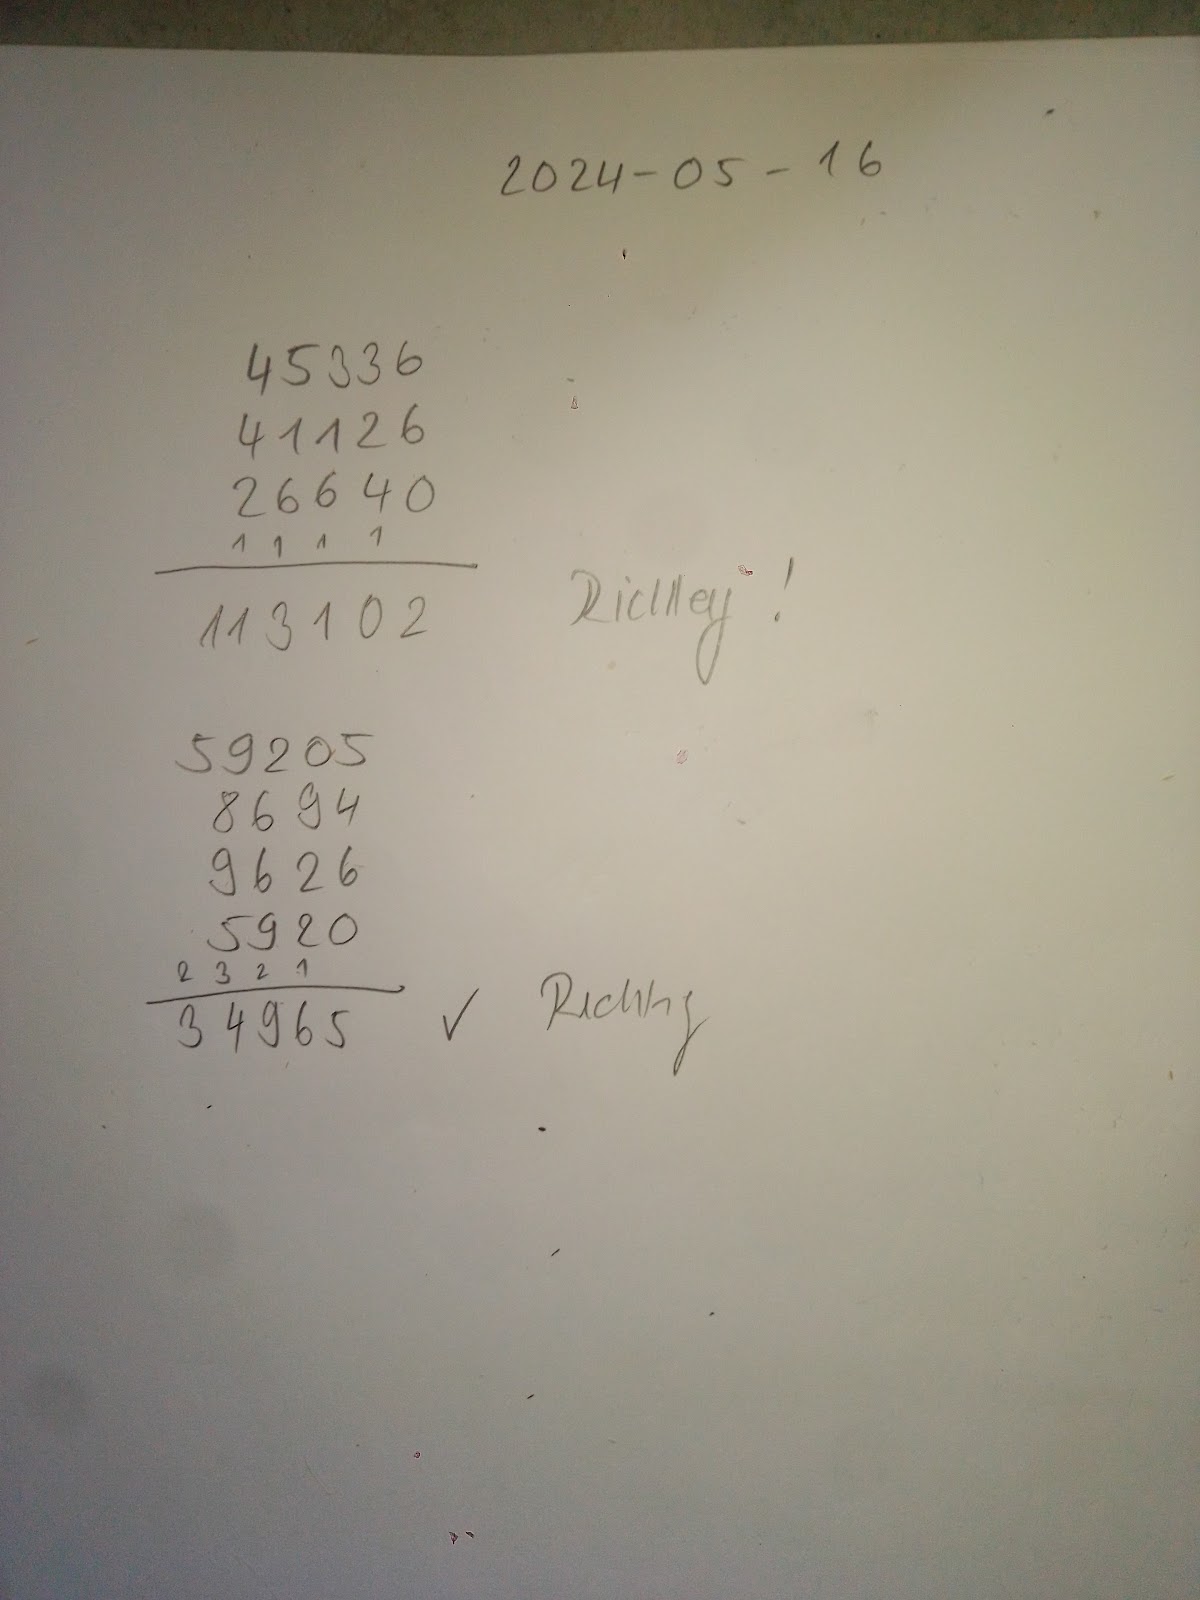 2024-05-16
45336
41126
26640
1 1 1 1
113102 Richtig !
59205
8694
9626
5920
2 3 2 1
34965 ✓ Richtig